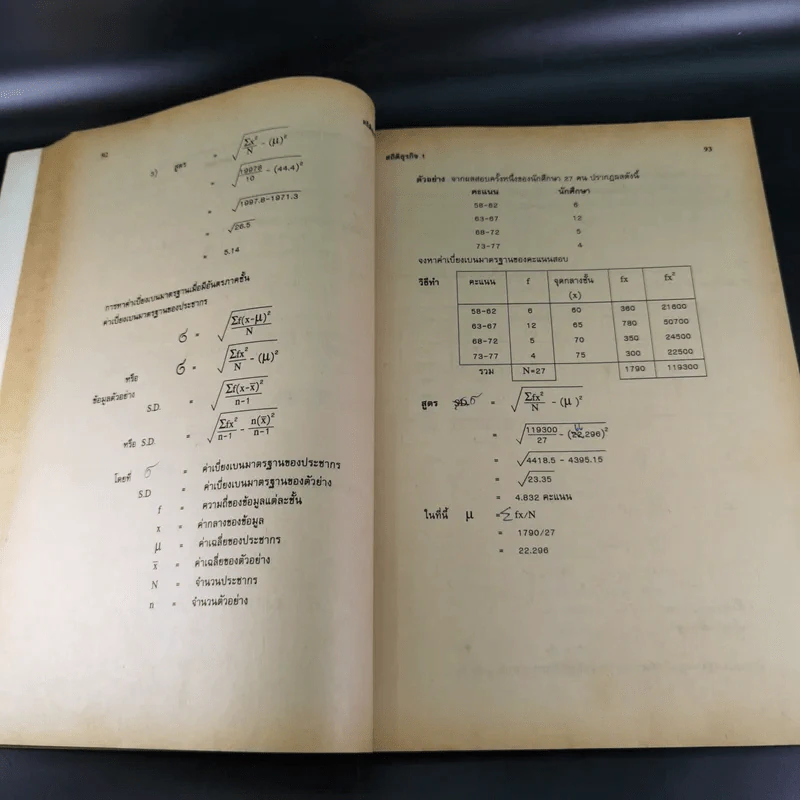 92
ข) สูตร = √(Σx²/N - (μ)²)
= √(19978/10 - (44.4)²)
= √(1997.8-1971.3)
= √26.5
= 5.14
การหาค่าเบี่ยงเบนมาตรฐานเมื่อมีอันตรภาคชั้น
ค่าเบี่ยงเบนมาตรฐานของประชากร
σ = √(Σf(x-μ)²/N)
หรือ σ = √(Σfx²/N - (μ)²)
ข้อมูลตัวอย่าง
S.D. = √(Σf(x-x̄)²/n-1)
หรือ S.D. = √(Σfx²/n-1 - n(x̄)²/n-1)
โดยที่ σ = ค่าเบี่ยงเบนมาตรฐานของประชากร
S.D = ค่าเบี่ยงเบนมาตรฐานของตัวอย่าง
f = ความถี่ของข้อมูลแต่ละชั้น
x = ค่ากลางของข้อมูล
μ = ค่าเฉลี่ยของประชากร
x̄ = ค่าเฉลี่ยของตัวอย่าง
N = จำนวนประชากร
n = จำนวนตัวอย่าง
สถิติธุรกิจ 1 93
ตัวอย่าง จากผลสอบครั้งหนึ่งของนักศึกษา 27 คน ปรากฏผลดังนี้
คะแนน นักศึกษา
58-62 6
63-67 12
68-72 5
73-77 4
จงหาค่าเบี่ยงเบนมาตรฐานของคะแนนสอบ
วิธีทำ คะแนน f จุดกลางชั้น (x) fx fx²
58-62 6 60 360 21600
63-67 12 65 780 50700
68-72 5 70 350 24500
73-77 4 75 300 22500
รวม N=27 1790 119300
สูตร σ = √(Σfx²/N - (μ)²)
= √(119300/27 - (22.296)²)
= √(4418.5 - 4395.15)
= √23.35
= 4.832 คะแนน
ในที่นี้ μ = Σfx/N
= 1790/27
= 22.296